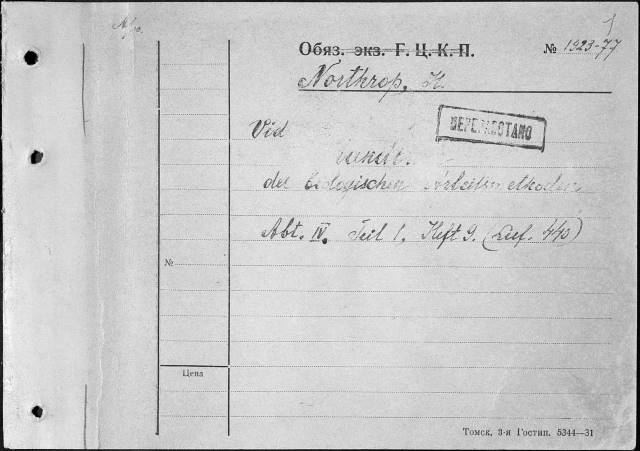 Обяз. экз. Г. Ц. К. П.
№ 1923-77
Northrop,
Vid
ПЕРЕМЕСТАНО
der biologischen Arbeitsmethoden,
Abt. IV. Teil 1. Heft 9. (Lief. 440)
№
Цена
Томск, 3-я Гостип. 5344—31